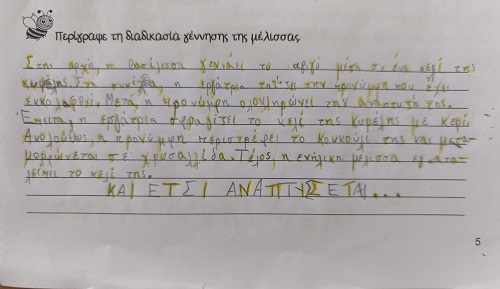 Περίγραψε τη διαδικασία γέννησης της μέλισσας
Στην αρχή, η βασίλισσα γεννάει το αβγό μέσα σε ένα κελί της
κυψέλης. Στη συνέχεια, η εργάτρια ταΐζει την προνύμφη που έχει
εκκολαφθεί. Μετά, η προνύμφη ολοκληρώνει την ανάπτυξή της.
Έπειτα, η εργάτρια σφραγίζει το κελί της κυψέλης με κερί
Ακολούθως, η προνύμφη περιστρέφει το κουκούλι της και μετα-
μορφώνεται σε χρυσαλλίδα. Τέλος, η ενήλικη μέλισσα εγκατα-
λείπει το κελί της.
ΚΑΙ ΕΤΣΙ ΑΝΑΠΤΥΣΕΤΑΙ...
5